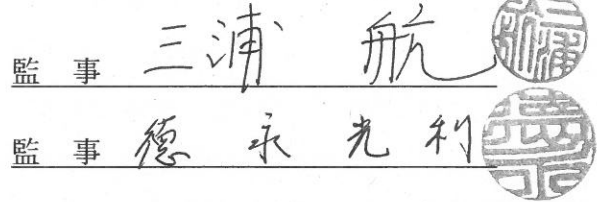 監 事 三浦 航
監 事 德永光利